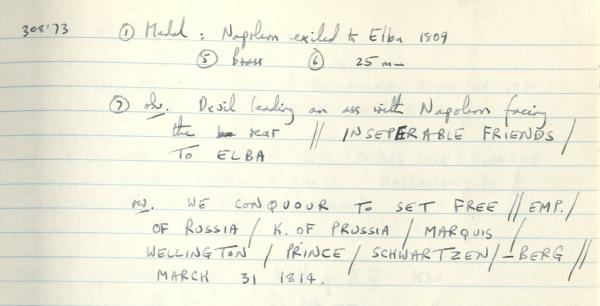 308'73 ① Medal : Napoleon exiled to Elba 1809
⑤ brass ⑥ 25 mm
⑦ obv. Devil leading an ass with Napoleon facing
the rear // INSEPERABLE FRIENDS /
TO ELBA
rev. WE CONQUOUR TO SET FREE // EMP. /
OF RUSSIA / K. OF PRUSSIA / MARQUIS /
WELLINGTON / PRINCE / SCHWARTZEN / -BERG //
MARCH 31 1814.